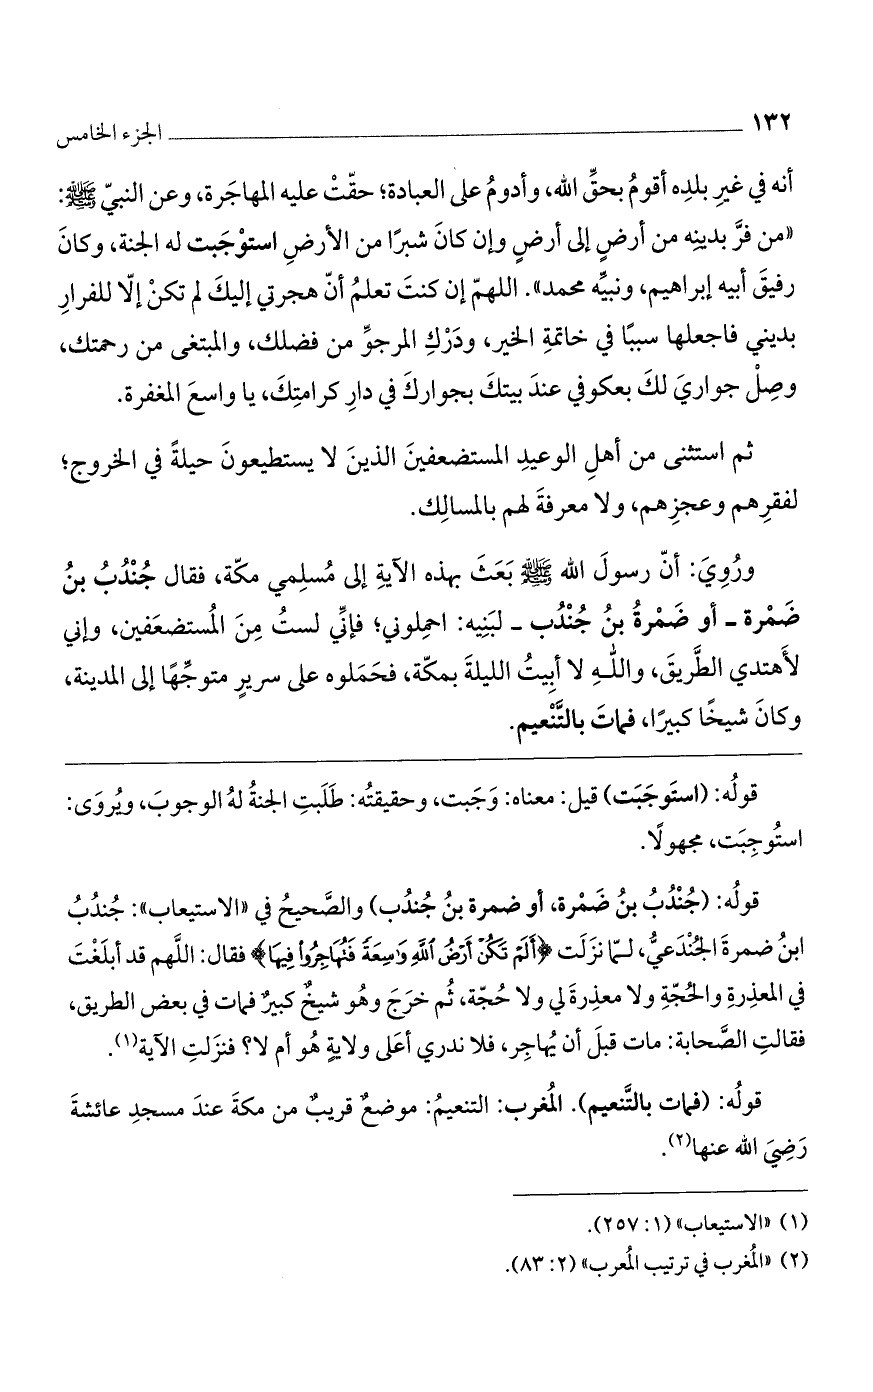 ١٣٢ الجزء الخامس
أنه في غيرِ بلدِه أقومُ بحقِّ الله، وأدومُ على العبادة؛ حقّتْ عليه المهاجَرة، وعن النبيّ ﷺ:
«من فرَّ بدينِه من أرضٍ إلى أرضٍ وإن كانَ شبرًا من الأرضِ استوْجَبت له الجنة، وكانَ
رفيقَ أبيه إبراهيم، ونبيِّه محمد». اللهمّ إن كنتَ تعلمُ أنّ هجرتي إليكَ لم تكنْ إلّا للفرارِ
بديني فاجعلها سببًا في خاتمةِ الخير، ودَرْكِ المرجوِّ من فضلك، والمبتغى من رحمتك،
وصِلْ جواريَ لكَ بعكوفي عندَ بيتكَ بجواركَ في دارِ كرامتِكَ، يا واسعَ المغفرة.
ثم استثنى من أهلِ الوعيدِ المستضعفينَ الذينَ لا يستطيعونَ حيلةً في الخروج؛
لفقرِهم وعجزِهم، ولا معرفةَ لهم بالمسالِك.
ورُوِيَ: أنّ رسولَ الله ﷺ بَعَثَ بهذه الآيةِ إلى مُسلِمي مكّة، فقال جُنْدُبُ بنُ
ضَمْرة ـ أو ضَمْرةُ بنُ جُنْدُب ـ لبَنِيه: احمِلوني؛ فإنِّي لستُ مِنَ المُستضعَفين، وإني
لأَهتدي الطَّريقَ، واللهِ لا أبِيتُ الليلةَ بمكّة، فحَمَلوه على سريرٍ متوجِّهًا إلى المدينة،
وكانَ شيخًا كبيرًا، فماتَ بالتَّنْعيم.
قولُه: (استَوجَبَت) قيل: معناه: وَجَبت، وحقيقتُه: طَلَبتِ الجنةُ لهُ الوجوبَ، ويُروَى:
استُوجِبَت، مجهولًا.
قولُه: (جُنْدُبُ بنُ ضَمْرة، أو ضمرة بنُ جُندُب) والصَّحيحُ في «الاستيعاب»: جُندُبُ
ابنُ ضمرةَ الجُنْدَعيُّ، لـمّا نزَلَت ﴿أَلَمْ تَكُنْ أَرْضُ ٱللَّهِ وَاسِعَةً فَتُهَاجِرُوا۟ فِيهَا﴾ فقال: اللَّهم قد أبلَغْتَ
في المعذِرةِ والحُجّةِ ولا معذِرةَ لي ولا حُجّة، ثُم خرَجَ وهُو شيخٌ كبيرٌ فمات في بعض الطريق،
فقالتِ الصَّحابة: مات قبلَ أن يُهاجِر، فلا ندري أعَلى ولايةٍ هُو أم لا؟ فنزَلتِ الآية(١).
قولُه: (فمات بالتَّنعيم). المُغرب: التنعيمُ: موضعٌ قريبٌ من مكةَ عندَ مسجدِ عائشةَ
رَضِيَ الله عنها(٢).
(١) «الاستيعاب» (١: ٢٥٧).
(٢) «المُغرب في ترتيب المُعرب» (٢: ٨٣).